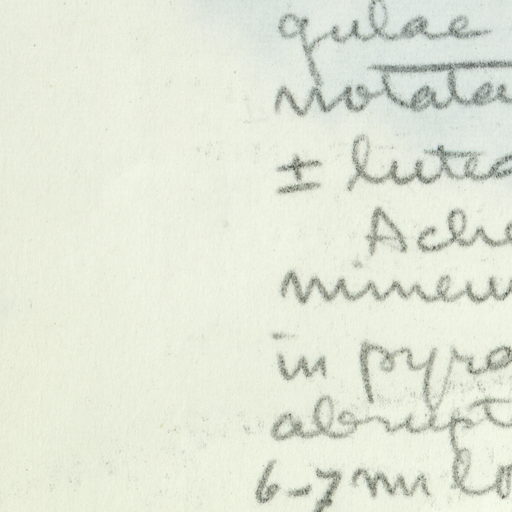 gulae
notata
± lutea
Ache
mineu
in pyra
abrupt
6-7 m lo